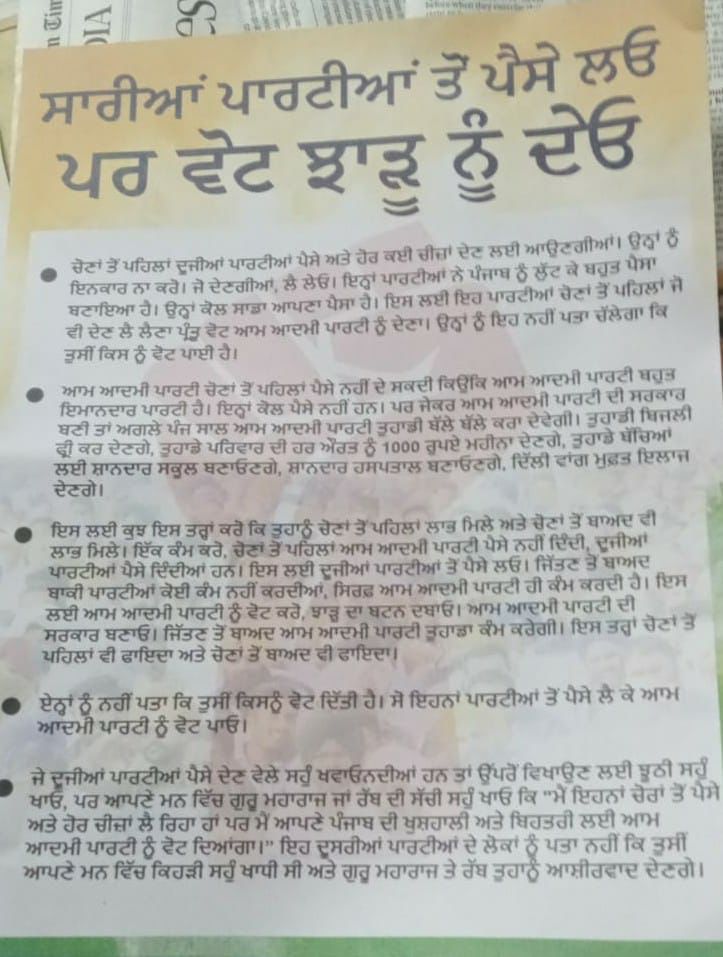 ਸਾਰੀਆਂ ਪਾਰਟੀਆਂ ਤੋਂ ਪੈਸੇ ਲਓ
ਪਰ ਵੋਟ ਝਾੜੂ ਨੂੰ ਦੇਓ
ਚੋਣਾਂ ਤੋਂ ਪਹਿਲਾਂ ਦੂਜੀਆਂ ਪਾਰਟੀਆਂ ਪੈਸੇ ਅਤੇ ਹੋਰ ਕਈ ਚੀਜ਼ਾਂ ਦੇਣ ਲਈ ਆਉਣਗੀਆਂ। ਉਨ੍ਹਾਂ ਨੂੰ
ਇਨਕਾਰ ਨਾ ਕਰੋ। ਜੋ ਦੇਣਗੀਆਂ, ਲੈ ਲੇਓ। ਇਨ੍ਹਾਂ ਪਾਰਟੀਆਂ ਨੇ ਪੰਜਾਬ ਨੂੰ ਲੁੱਟ ਕੇ ਬਹੁਤ ਪੈਸਾ
ਬਣਾਇਆ ਹੈ। ਉਨ੍ਹਾਂ ਕੋਲ ਸਾਡਾ ਆਪਣਾ ਪੈਸਾ ਹੈ। ਇਸ ਲਈ ਇਹ ਪਾਰਟੀਆਂ ਚੋਣਾਂ ਤੋਂ ਪਹਿਲਾਂ ਜੋ
ਵੀ ਦੇਣ ਲੈ ਲੈਣਾ ਪ੍ਰੰਤੂ ਵੋਟ ਆਮ ਆਦਮੀ ਪਾਰਟੀ ਨੂੰ ਦੇਣਾ। ਉਨ੍ਹਾਂ ਨੂੰ ਇਹ ਨਹੀਂ ਪਤਾ ਚੱਲੇਗਾ ਕਿ
ਤੁਸੀਂ ਕਿਸ ਨੂੰ ਵੋਟ ਪਾਈ ਹੈ।
ਆਮ ਆਦਮੀ ਪਾਰਟੀ ਚੋਣਾਂ ਤੋਂ ਪਹਿਲਾਂ ਪੈਸੇ ਨਹੀਂ ਦੇ ਸਕਦੀ ਕਿਉਂਕਿ ਆਮ ਆਦਮੀ ਪਾਰਟੀ ਬਹੁਤ
ਇਮਾਨਦਾਰ ਪਾਰਟੀ ਹੈ। ਇਨ੍ਹਾਂ ਕੋਲ ਪੈਸੇ ਨਹੀਂ ਹਨ। ਪਰ ਜੇਕਰ ਆਮ ਆਦਮੀ ਪਾਰਟੀ ਦੀ ਸਰਕਾਰ
ਬਣੀ ਤਾਂ ਅਗਲੇ ਪੰਜ ਸਾਲ ਆਮ ਆਦਮੀ ਪਾਰਟੀ ਤੁਹਾਡੀ ਬੱਲੇ ਬੱਲੇ ਕਰਾ ਦੇਵੇਗੀ। ਤੁਹਾਡੀ ਬਿਜਲੀ
ਫ੍ਰੀ ਕਰ ਦੇਣਗੇ, ਤੁਹਾਡੇ ਪਰਿਵਾਰ ਦੀ ਹਰ ਔਰਤ ਨੂੰ 1000 ਰੁਪਏ ਮਹੀਨਾ ਦੇਣਗੇ, ਤੁਹਾਡੇ ਬੱਚਿਆਂ
ਲਈ ਸ਼ਾਨਦਾਰ ਸਕੂਲ ਬਣਾਓਣਗੇ, ਸ਼ਾਨਦਾਰ ਹਸਪਤਾਲ ਬਣਾਓਣਗੇ, ਦਿੱਲੀ ਵਾਂਗ ਮੁਫ਼ਤ ਇਲਾਜ
ਦੇਣਗੇ।
ਇਸ ਲਈ ਕੁਝ ਇਸ ਤਰ੍ਹਾਂ ਕਰੋ ਕਿ ਤੁਹਾਨੂੰ ਚੋਣਾਂ ਤੋਂ ਪਹਿਲਾਂ ਲਾਭ ਮਿਲੇ ਅਤੇ ਚੋਣਾਂ ਤੋਂ ਬਾਅਦ ਵੀ
ਲਾਭ ਮਿਲੇ। ਇੱਕ ਕੰਮ ਕਰੋ, ਚੋਣਾਂ ਤੋਂ ਪਹਿਲਾਂ ਆਮ ਆਦਮੀ ਪਾਰਟੀ ਪੈਸੇ ਨਹੀਂ ਦਿੰਦੀ, ਦੂਜੀਆਂ
ਪਾਰਟੀਆਂ ਪੈਸੇ ਦਿੰਦੀਆਂ ਹਨ। ਇਸ ਲਈ ਦੂਜੀਆਂ ਪਾਰਟੀਆਂ ਤੋਂ ਪੈਸੇ ਲਓ। ਜਿੱਤਣ ਤੋਂ ਬਾਅਦ
ਬਾਕੀ ਪਾਰਟੀਆਂ ਕੋਈ ਕੰਮ ਨਹੀਂ ਕਰਦੀਆਂ, ਸਿਰਫ਼ ਆਮ ਆਦਮੀ ਪਾਰਟੀ ਹੀ ਕੰਮ ਕਰਦੀ ਹੈ। ਇਸ
ਲਈ ਆਮ ਆਦਮੀ ਪਾਰਟੀ ਨੂੰ ਵੋਟ ਕਰੋ, ਝਾੜੂ ਦਾ ਬਟਨ ਦਬਾਓ। ਆਮ ਆਦਮੀ ਪਾਰਟੀ ਦੀ
ਸਰਕਾਰ ਬਣਾਓ। ਜਿੱਤਣ ਤੋਂ ਬਾਅਦ ਆਮ ਆਦਮੀ ਪਾਰਟੀ ਤੁਹਾਡਾ ਕੰਮ ਕਰੇਗੀ। ਇਸ ਤਰ੍ਹਾਂ ਚੋਣਾਂ ਤੋਂ
ਪਹਿਲਾਂ ਵੀ ਫਾਇਦਾ ਅਤੇ ਚੋਣਾਂ ਤੋਂ ਬਾਅਦ ਵੀ ਫਾਇਦਾ।
ਏਨ੍ਹਾਂ ਨੂੰ ਨਹੀਂ ਪਤਾ ਕਿ ਤੁਸੀਂ ਕਿਸਨੂੰ ਵੋਟ ਦਿੱਤੀ ਹੈ। ਸੋ ਇਹਨਾਂ ਪਾਰਟੀਆਂ ਤੋਂ ਪੈਸੇ ਲੈ ਕੇ ਆਮ
ਆਦਮੀ ਪਾਰਟੀ ਨੂੰ ਵੋਟ ਪਾਓ।
ਜੇ ਦੂਜੀਆਂ ਪਾਰਟੀਆਂ ਪੈਸੇ ਦੇਣ ਵੇਲੇ ਸਹੁੰ ਖਵਾਓਨਦੀਆਂ ਹਨ ਤਾਂ ਉੱਪਰੋਂ ਵਿਖਾਉਣ ਲਈ ਝੂਠੀ ਸਹੁੰ
ਖਾਓ, ਪਰ ਆਪਣੇ ਮਨ ਵਿੱਚ ਗੁਰੂ ਮਹਾਰਾਜ ਜਾਂ ਰੱਬ ਦੀ ਸੱਚੀ ਸਹੁੰ ਖਾਓ ਕਿ "ਮੈਂ ਇਹਨਾਂ ਚੋਰਾਂ ਤੋਂ ਪੈਸੇ
ਅਤੇ ਹੋਰ ਚੀਜ਼ਾਂ ਲੈ ਰਿਹਾ ਹਾਂ ਪਰ ਮੈਂ ਆਪਣੇ ਪੰਜਾਬ ਦੀ ਖੁਸ਼ਹਾਲੀ ਅਤੇ ਬਿਹਤਰੀ ਲਈ ਆਮ
ਆਦਮੀ ਪਾਰਟੀ ਨੂੰ ਵੋਟ ਦਿਆਂਗਾ।" ਇਹ ਦੂਸਰੀਆਂ ਪਾਰਟੀਆਂ ਦੇ ਲੋਕਾਂ ਨੂੰ ਪਤਾ ਨਹੀਂ ਕਿ ਤੁਸੀਂ
ਆਪਣੇ ਮਨ ਵਿੱਚ ਕਿਹੜੀ ਸਹੁੰ ਖਾਧੀ ਸੀ ਅਤੇ ਗੁਰੂ ਮਹਾਰਾਜ ਤੇ ਰੱਬ ਤੁਹਾਨੂੰ ਆਸ਼ੀਰਵਾਦ ਦੇਣਗੇ।